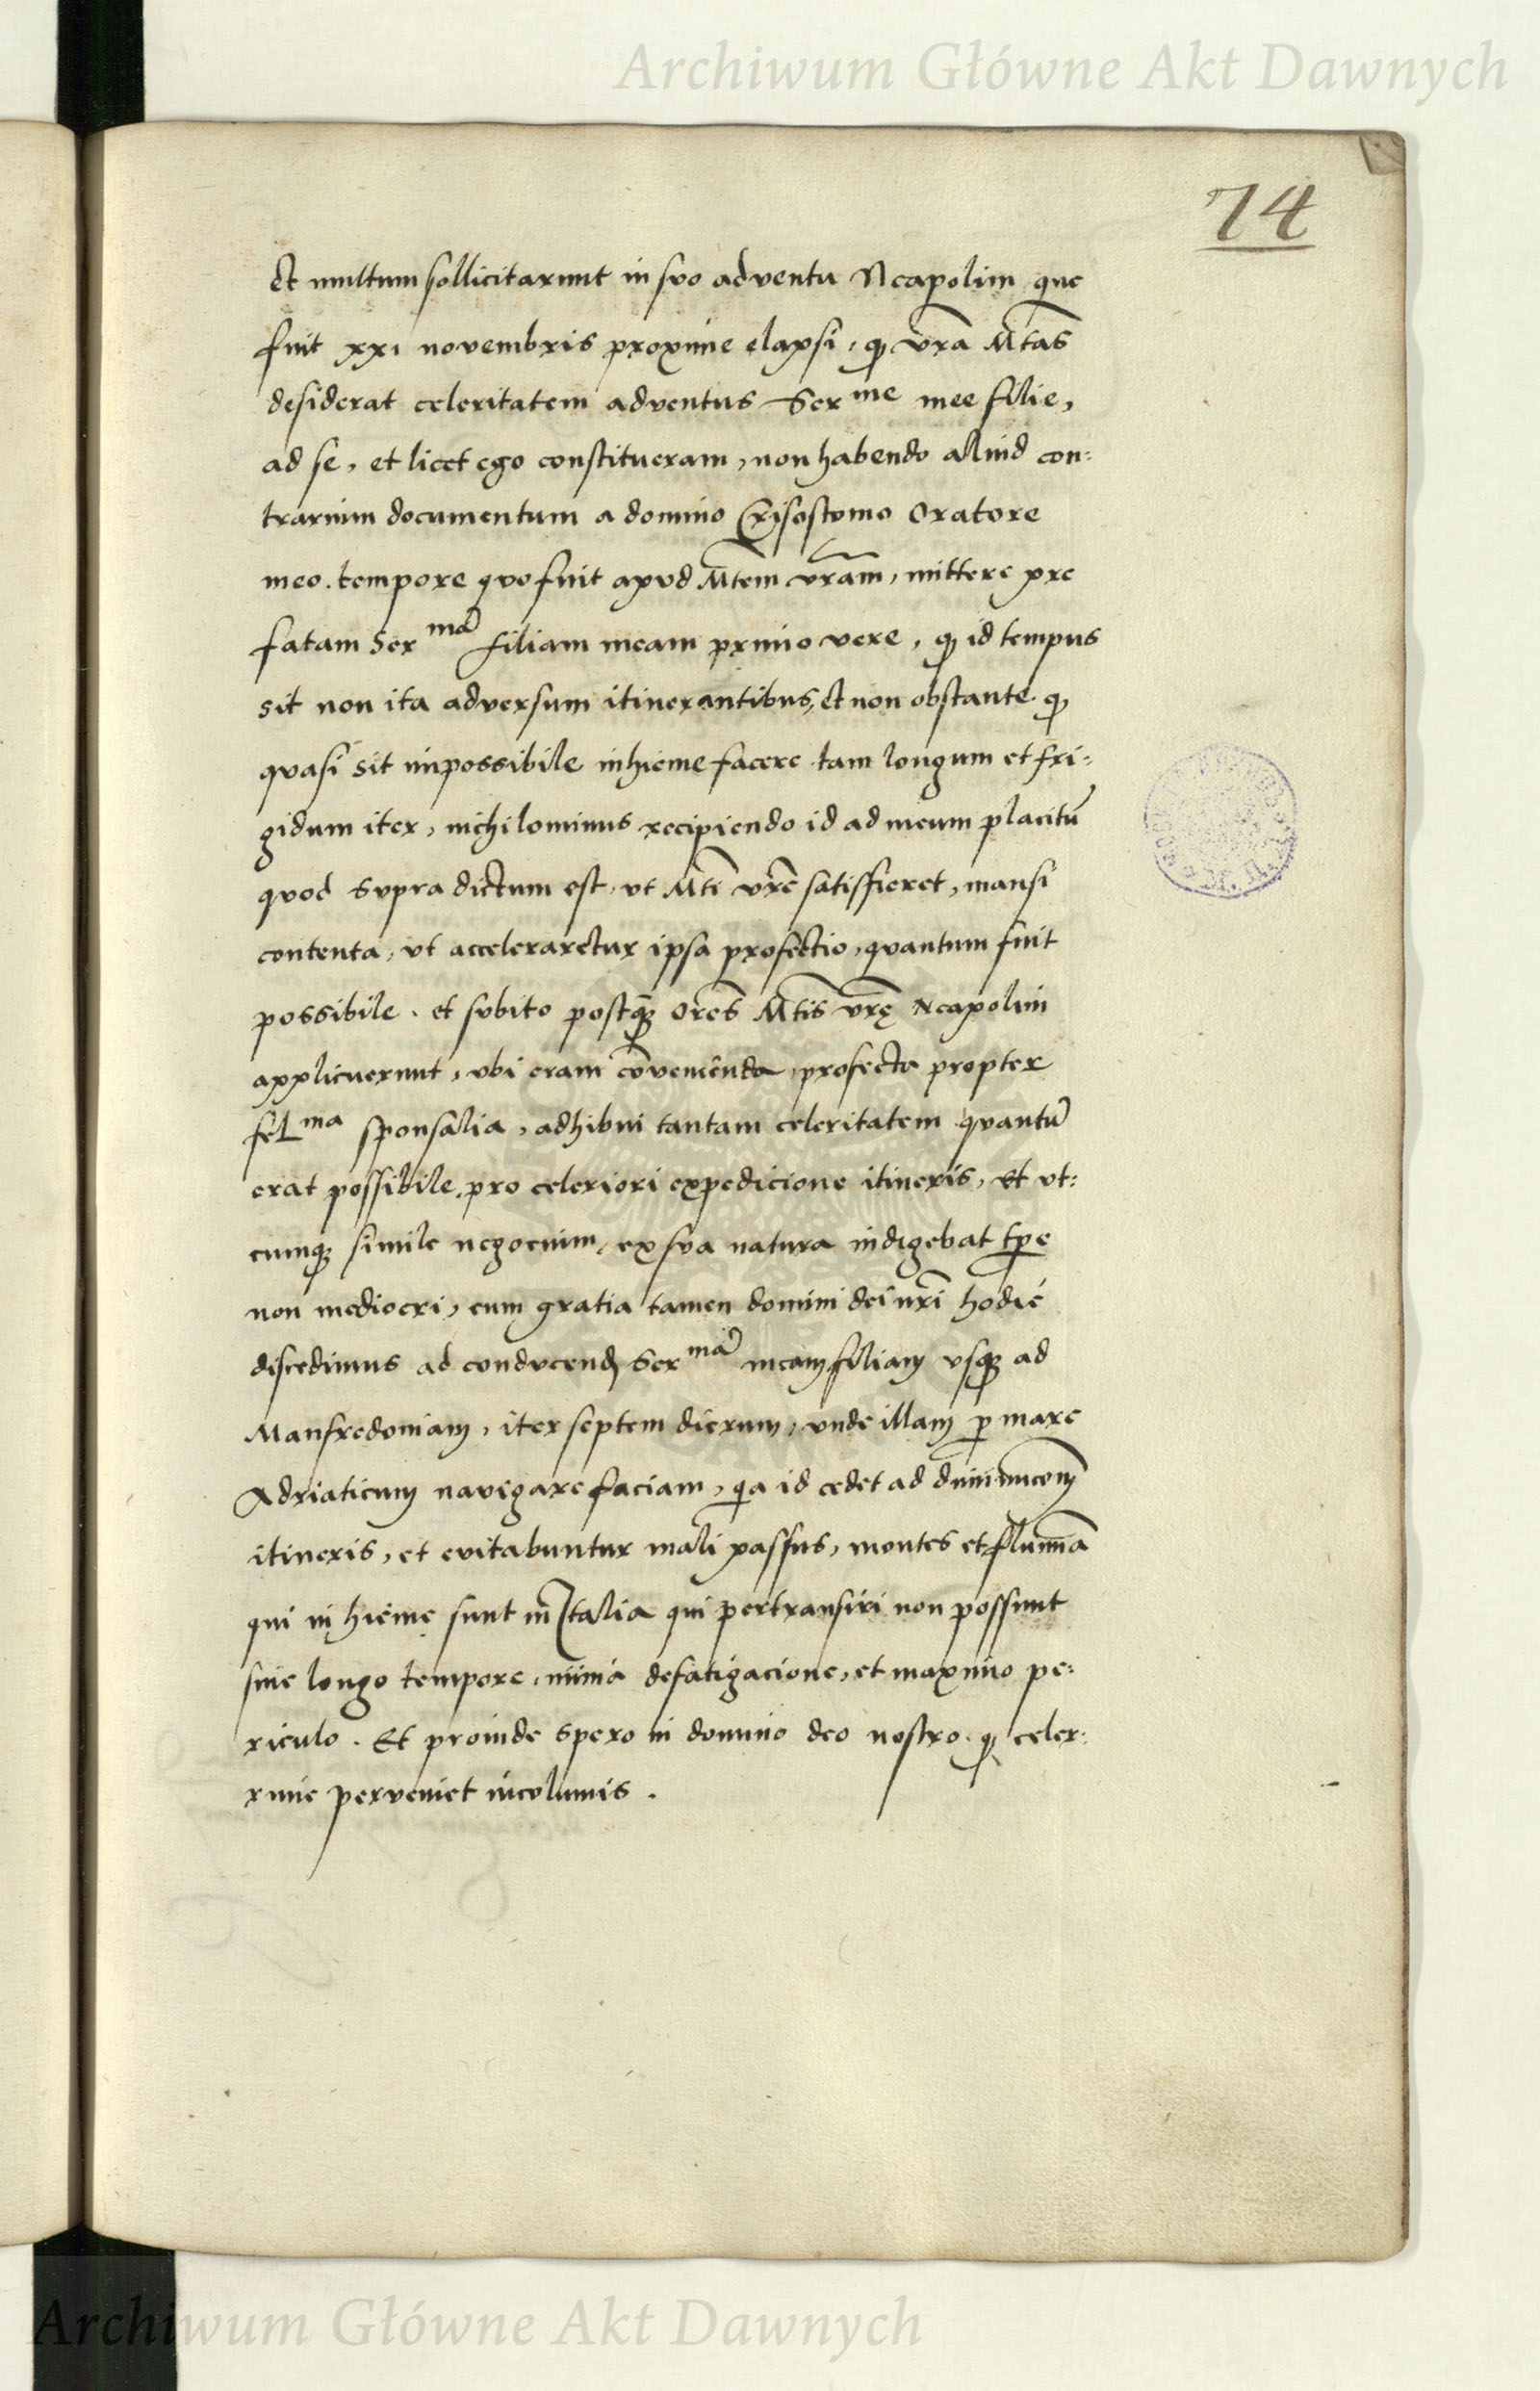 Archiwum Główne Akt Dawnych
74
Et multum sollicitarunt in suo adventu Neapolim que
fuit xxi novembris proxime elapsi, qꝫ vr̄a Mt̄as
desiderat celeritatem adventus Ser me mee filie,
ad se, et licet ego constitueram, non habendo aliud con:
trarium documentum a domino Crisostomo Oratore
meo. tempore quo fuit apud Mt̄em vr̄am, mittere pre
fatam Ser mā filiam meam primo vere, qꝫ id tempus
sit non ita adversum itinerantibus, et non obstante qꝫ
quasi sit impossibile in hieme facere tam longum et fri:
gidum iter, nichilominus recipiendo id ad meum placitū
quod supra dictum est, ut Mt̄i vr̄e satisfieret, mansi
contenta, ut acceleraretur ipsa profectio, quantum fuit
possibile. et subito postqꝫ Or̄es Mt̄is vr̄ę Neapolim
applicuerunt, ubi eram cōveniēnda, profecta propter
feL ma sponsalia, adhibui tantam celeritatem quantū
erat possibile, pro celeriori expedicione itineris, Et ut:
cumqꝫ simile negocium, ex sua natura indigebat tp̄e
non mediocri, cum gratia tamen domini dei nr̄i hodie
discedimus ad conducendꝫ Ser mā meam filiam usqꝫ ad
Manfredoniam, iter septem dierum, unde illam p̱ mare
Adriaticum navigare faciam, qa id cedet ad diminucōnē
itineris, et evitabuntur mali passus, montes et flumīa
qui in hieme sunt in Italia qui pertransiri non possunt
sine longo tempore, nimia defatigacione, et maximo pe:
riculo. Et proinde spero in domino deo nostro. qꝫ celer:
rime perveniet incolumis.
Archiwum Główne Akt Dawnych